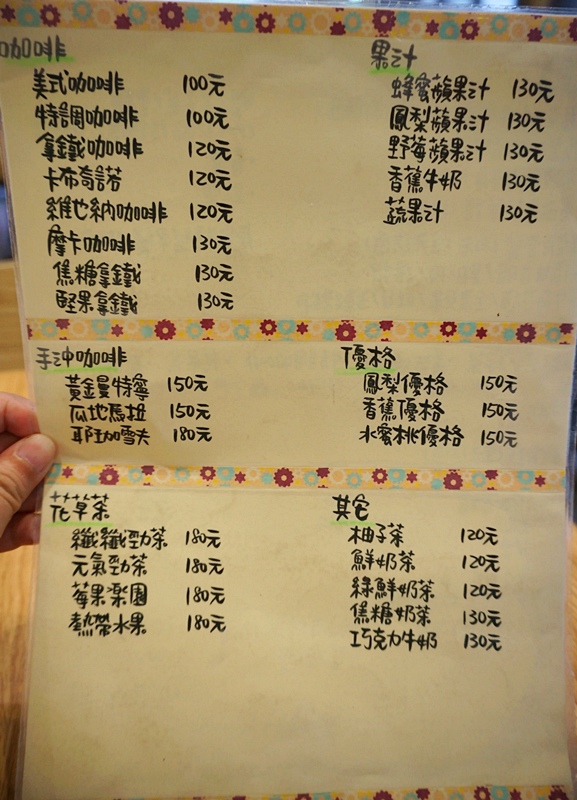 咖啡
美式咖啡 100元
特調咖啡 100元
拿鐵咖啡 120元
卡布奇諾 120元
維也納咖啡 120元
摩卡咖啡 130元
焦糖拿鐵 130元
堅果拿鐵 130元
果汁
蜂蜜蘋果汁 130元
鳳梨蘋果汁 130元
野莓蘋果汁 130元
香蕉牛奶 130元
蔬果汁 130元
手沖咖啡
黃金曼特寧 150元
瓜地馬拉 150元
耶珈雪夫 180元
優格
鳳梨優格 150元
香蕉優格 150元
水蜜桃優格 150元
花草茶
纖纖勁茶 180元
元氣勁茶 180元
莓果樂園 180元
熱帶水果 180元
其它
柚子茶 120元
鮮奶茶 120元
綠鮮奶茶 120元
焦糖奶茶 130元
巧克力牛奶 130元